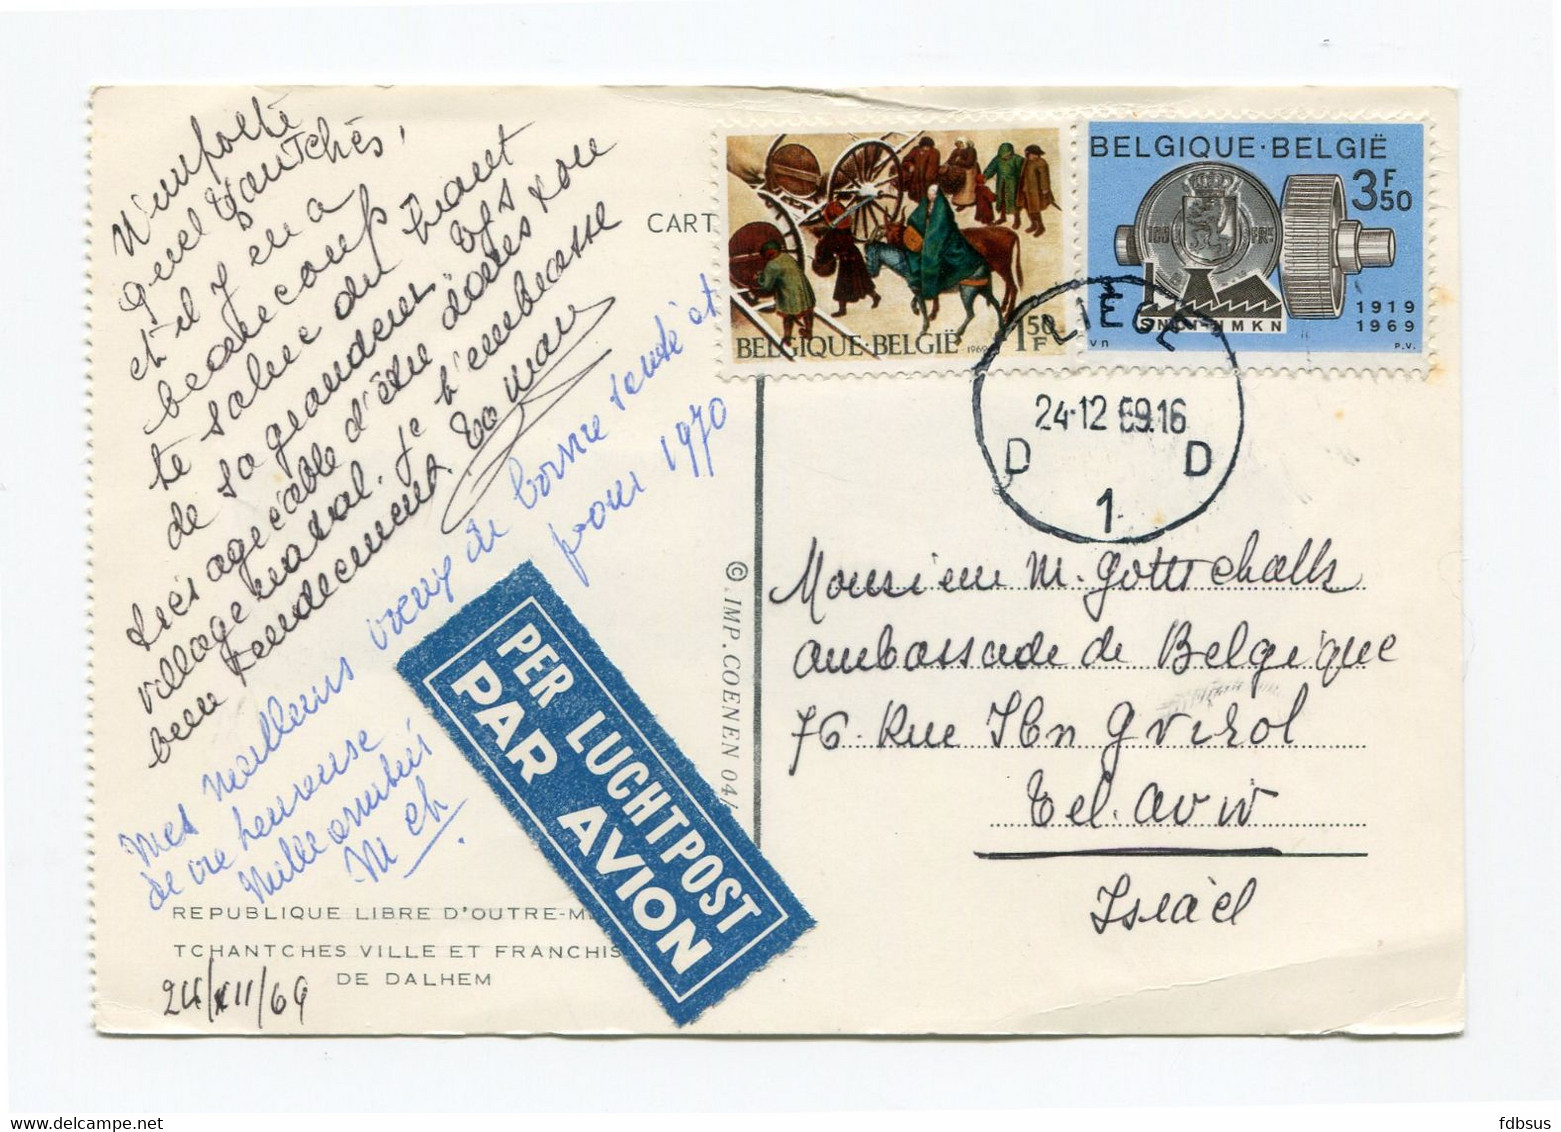 N'importe
quel Tchantchès,
et il y en a
beaucoup
te salue du haut
de sa grandeur.
très agréable d'être dans son
village natal. Je t'embrasse
bien tendrement
Mes meilleurs vœux de bonne santé et
de vie heureuse pour 1970
Mille amitiés
M Ch.
REPUBLIQUE LIBRE D'OUTRE-M
TCHANTCHES VILLE ET FRANCHIS
DE DALHEM
24/XII/69
CART
© IMP. COENEN 04/
PER LUCHTPOST
PAR AVION
BELGIQUE·BELGIË 1969 1 50 F
BELGIQUE·BELGIË
3F50
100 FRS
1919
1969
SNCI-NMKN
Vn P.V.
LIEGE
24-12 69.16
D D
1
Monsieur M. Gottschalk
Ambassade de Belgique
76. Rue Ibn Gvirol
Tel. Aviv
Israël
fdbsus